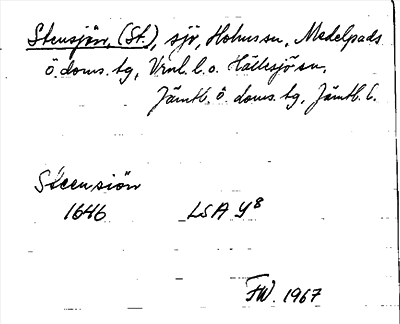 Stensjön, (St.), sjö, Holms sn, Medelpads
ö. doms. tg, Vrnl. l. o. Hällesjö sn,
Jämtl. ö. doms. tg, Jämtl. l.
Steensiön
1646 LSA Y8
FW. 1967